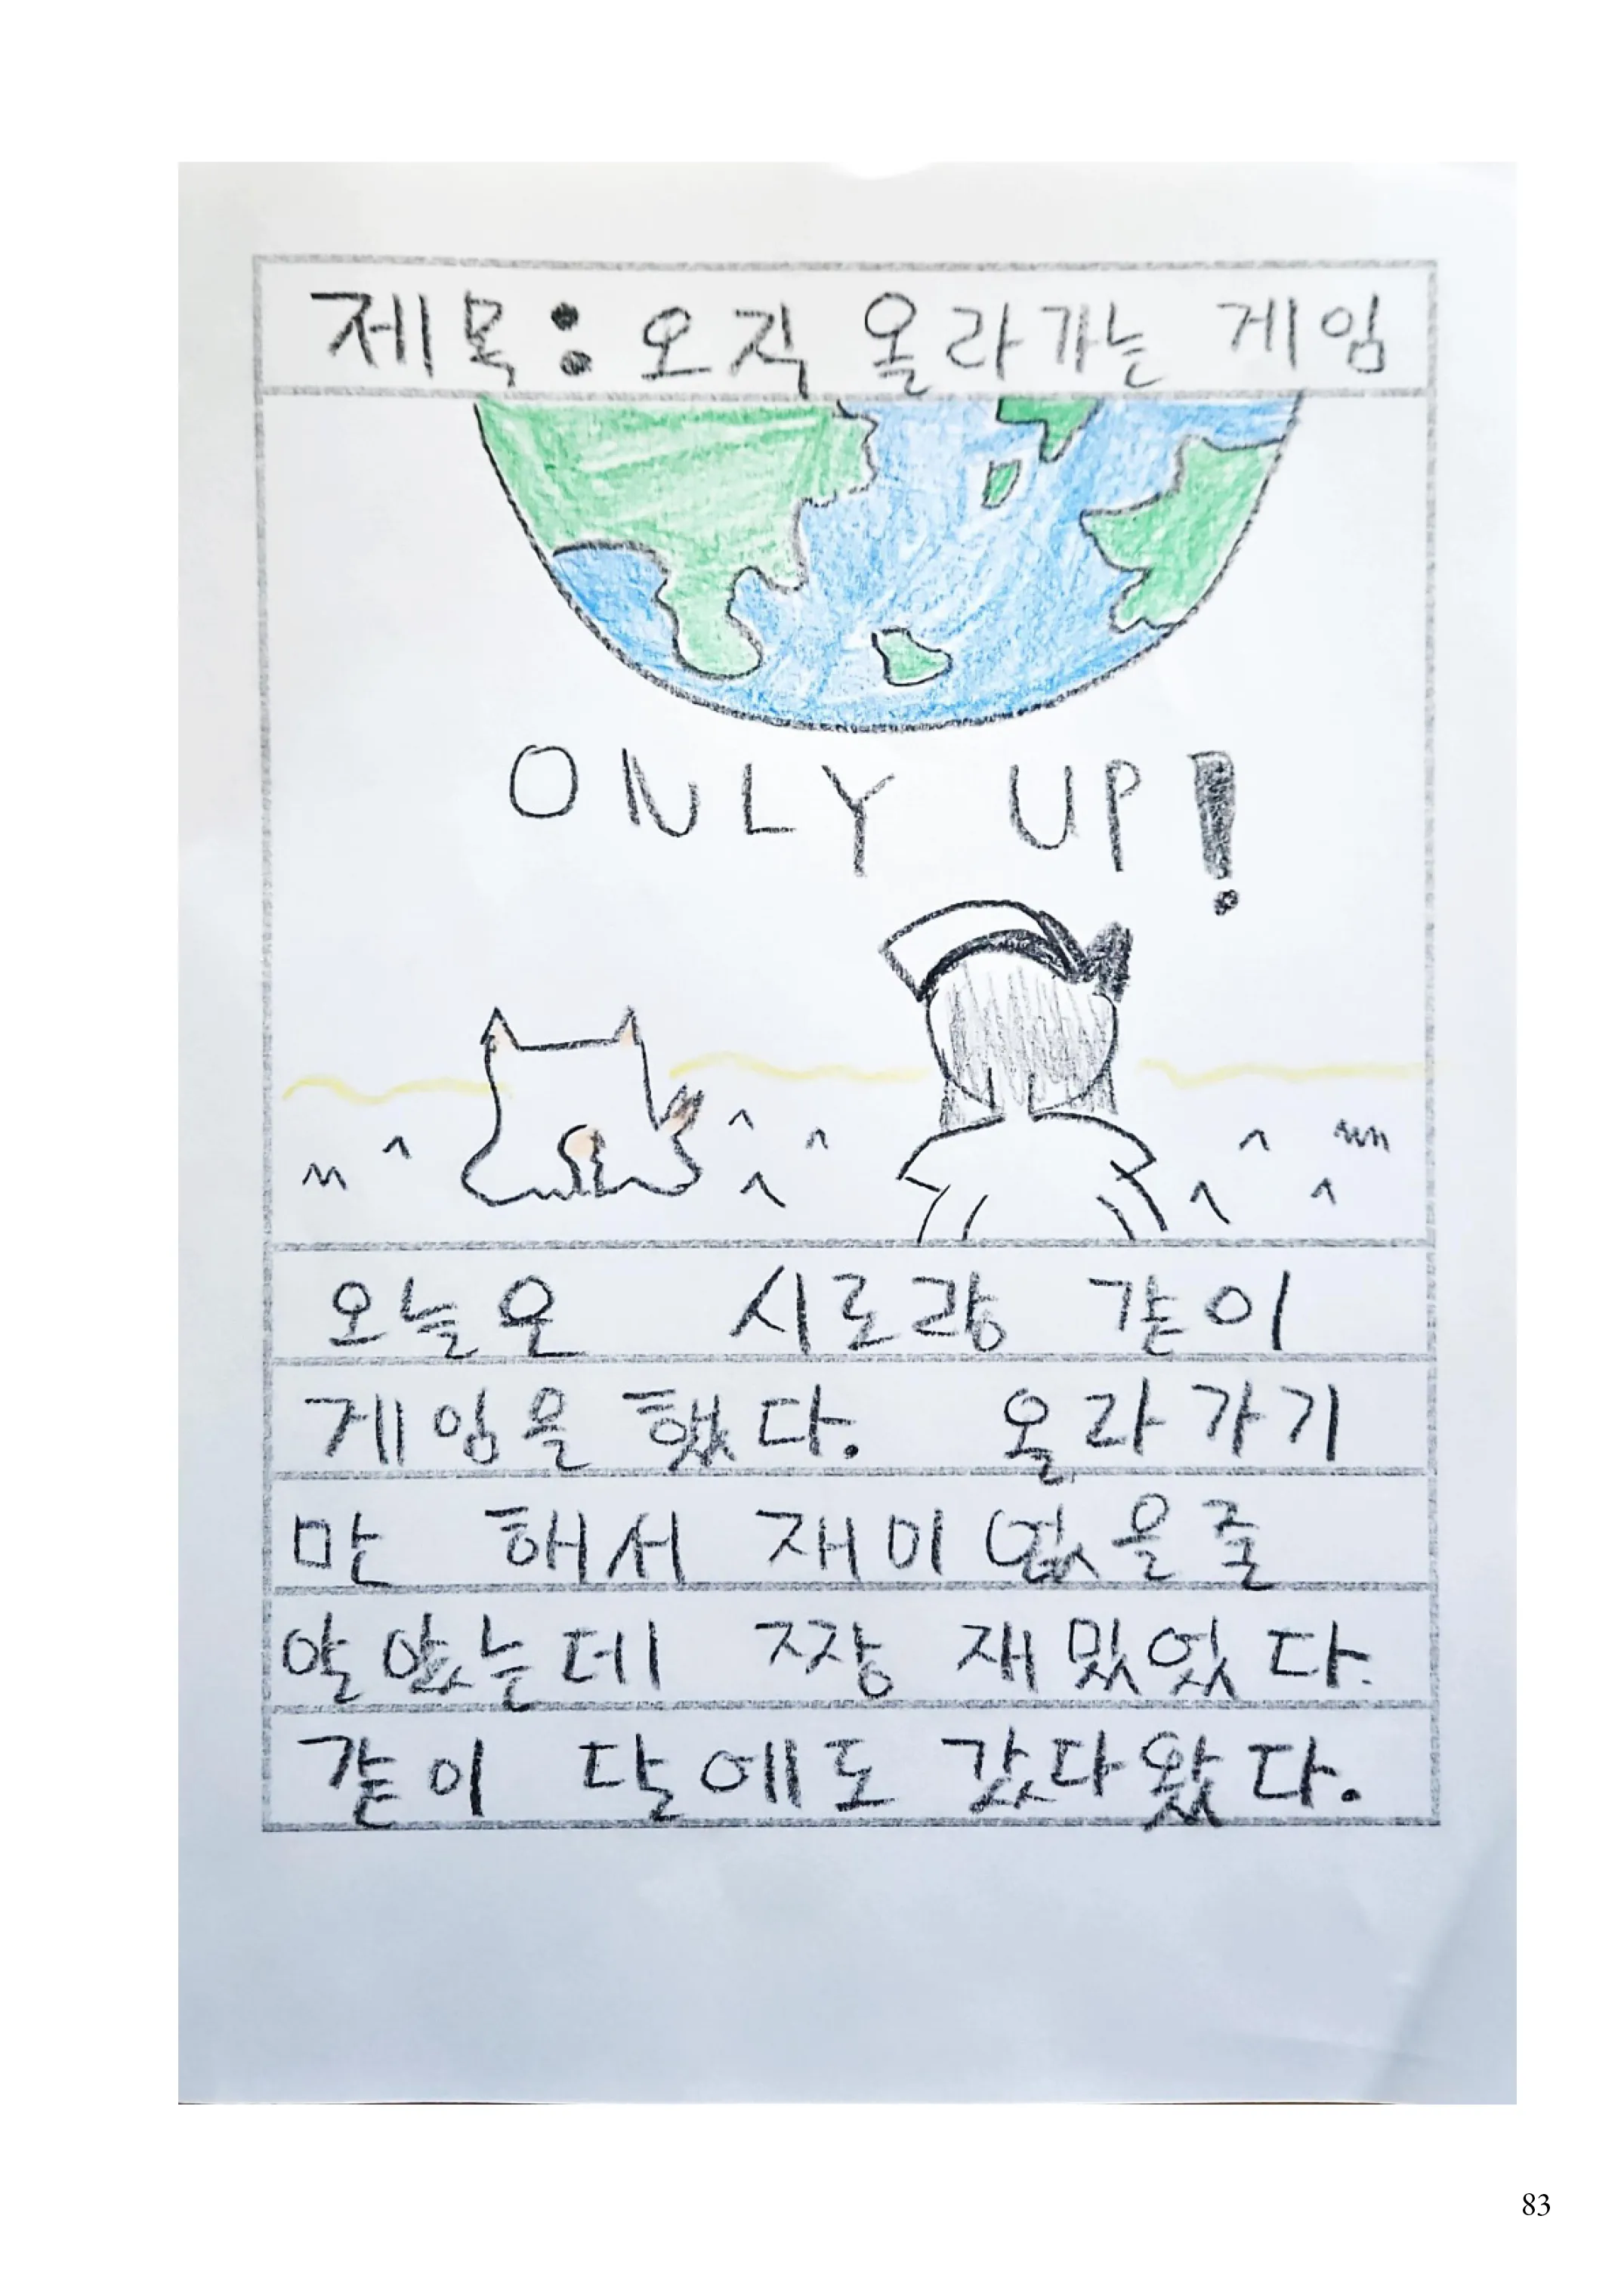 제목: 오직 올라가는 게임
ONLY UP!
오늘은 시로랑 같이
게임을 했다. 올라가기
만 해서 재미없을줄
알았는데 짱 재밌었다.
같이 달에도 갔다왔다.
83